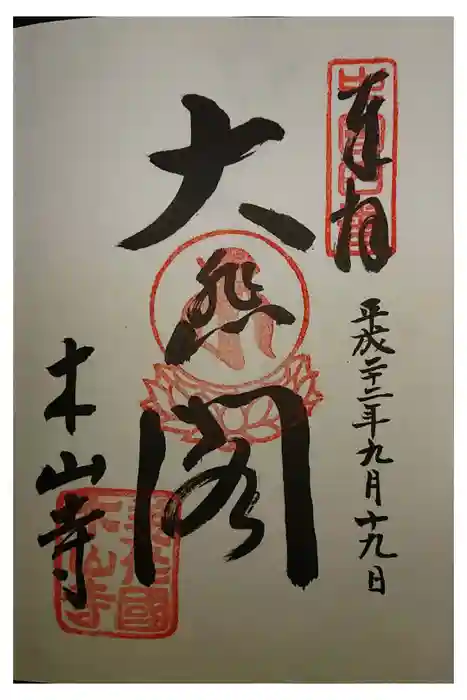 奉拝
平成二十二年九月十九日
大悲閣
木山寺
美作國
木山寺